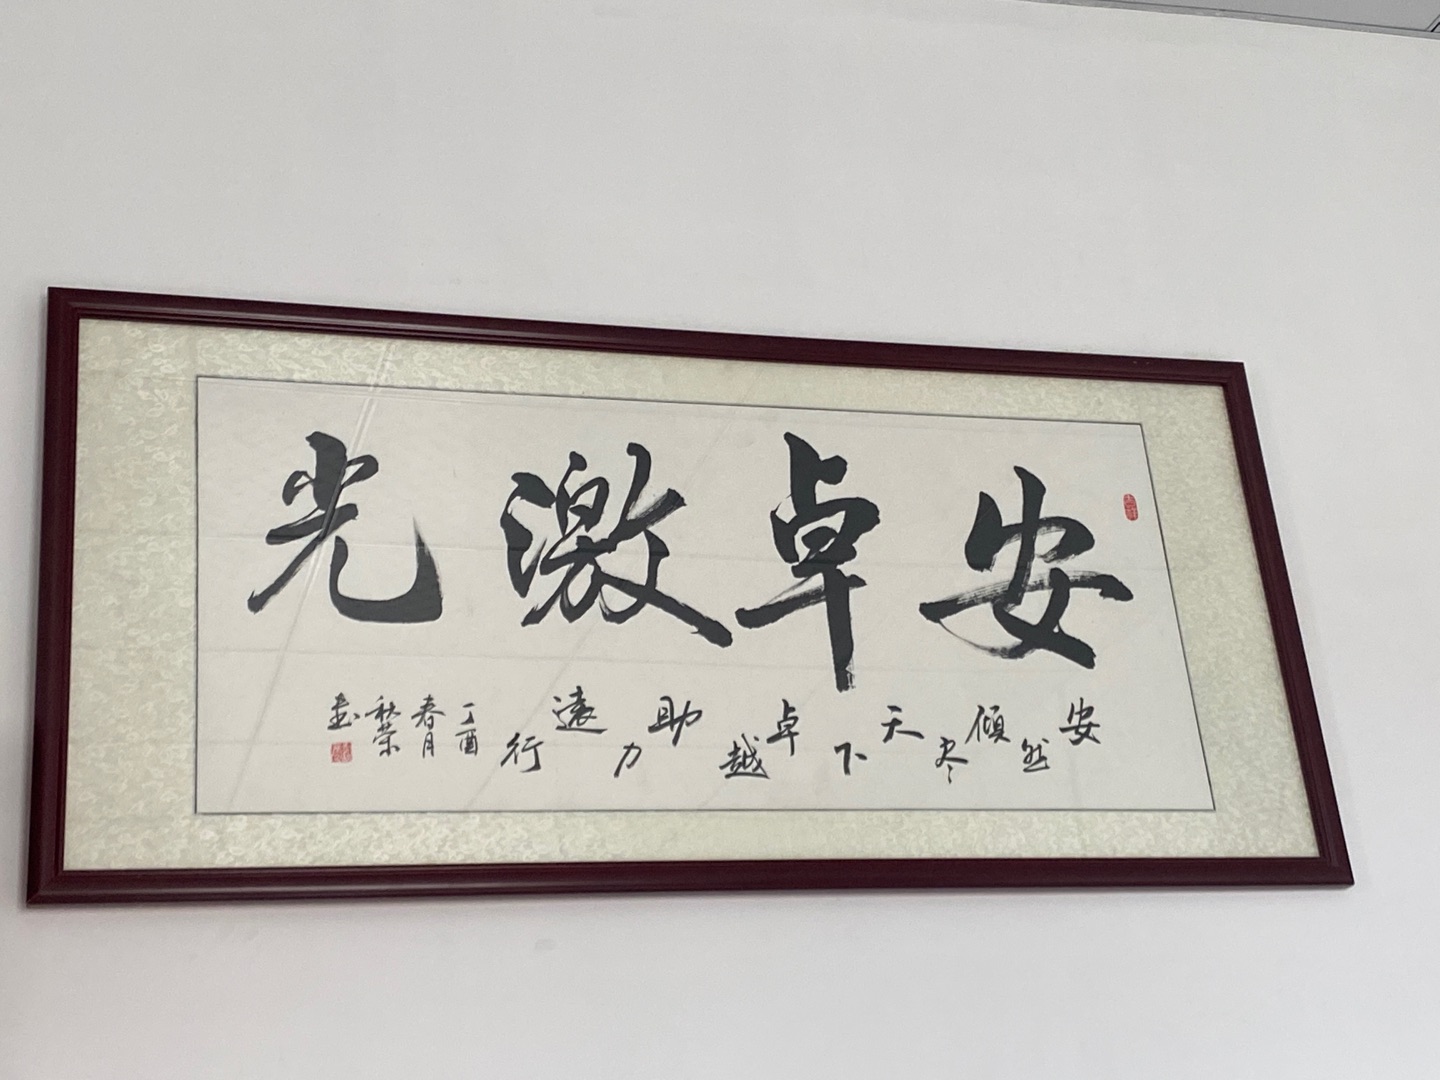 安卓激光
安然倾尽天下卓越助力远行
丁酉
春月
秋荣
书